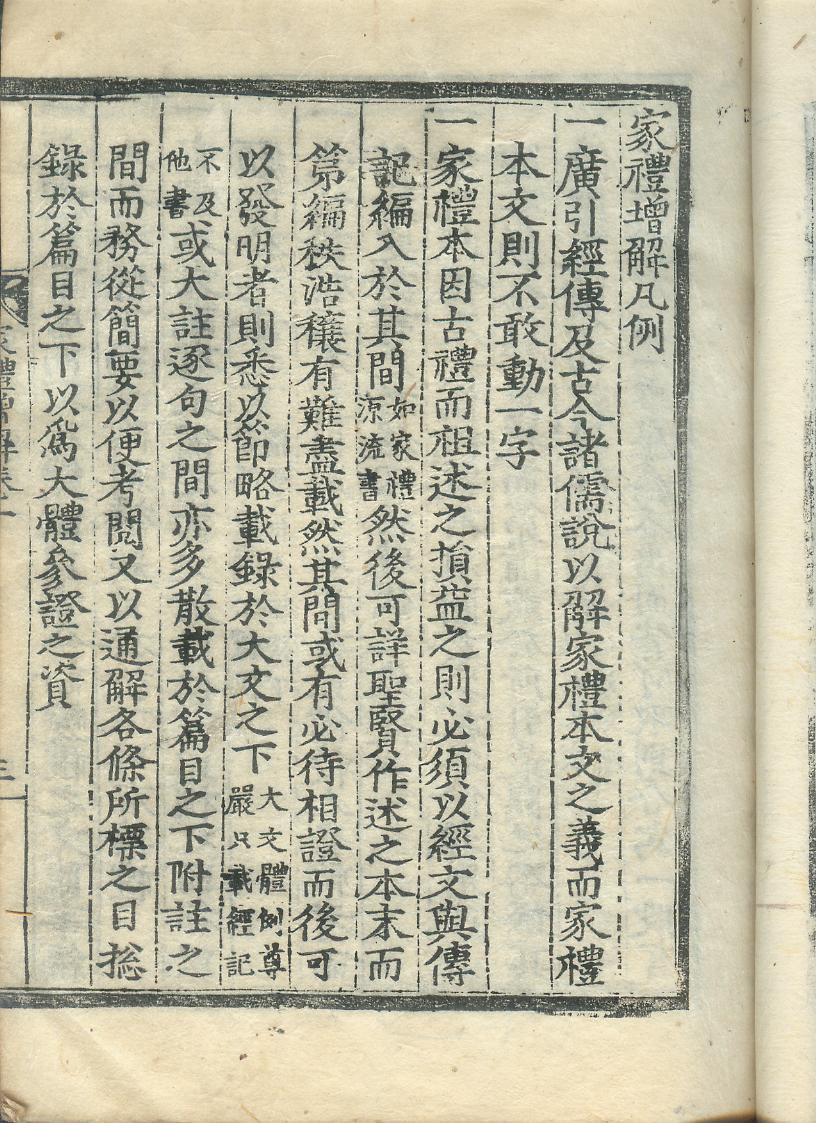 家禮增解凡例
一廣引經傳及古今諸儒說以解家禮本文之義而家禮
本文則不敢動一字
一家禮本因古禮而祖述之損益之則必須以經文與傳
記編入於其間如家禮源流書然後可詳聖賢作述之本末而
第編秩浩穰有難盡載然其間或有必待相證而後可
以發明者則悉以節略載錄於大文之下大文體例尊嚴只載經記
不及他書或大註逐句之間亦多散載於篇目之下附註之
間而務從簡要以便考閱又以通解各條所標之目捴
錄於篇目之下以爲大體參證之資
家禮增解卷一
三